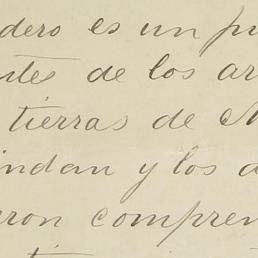 dero es un pu
ntes de los ar
tierras de M
indan y los d
eron compren